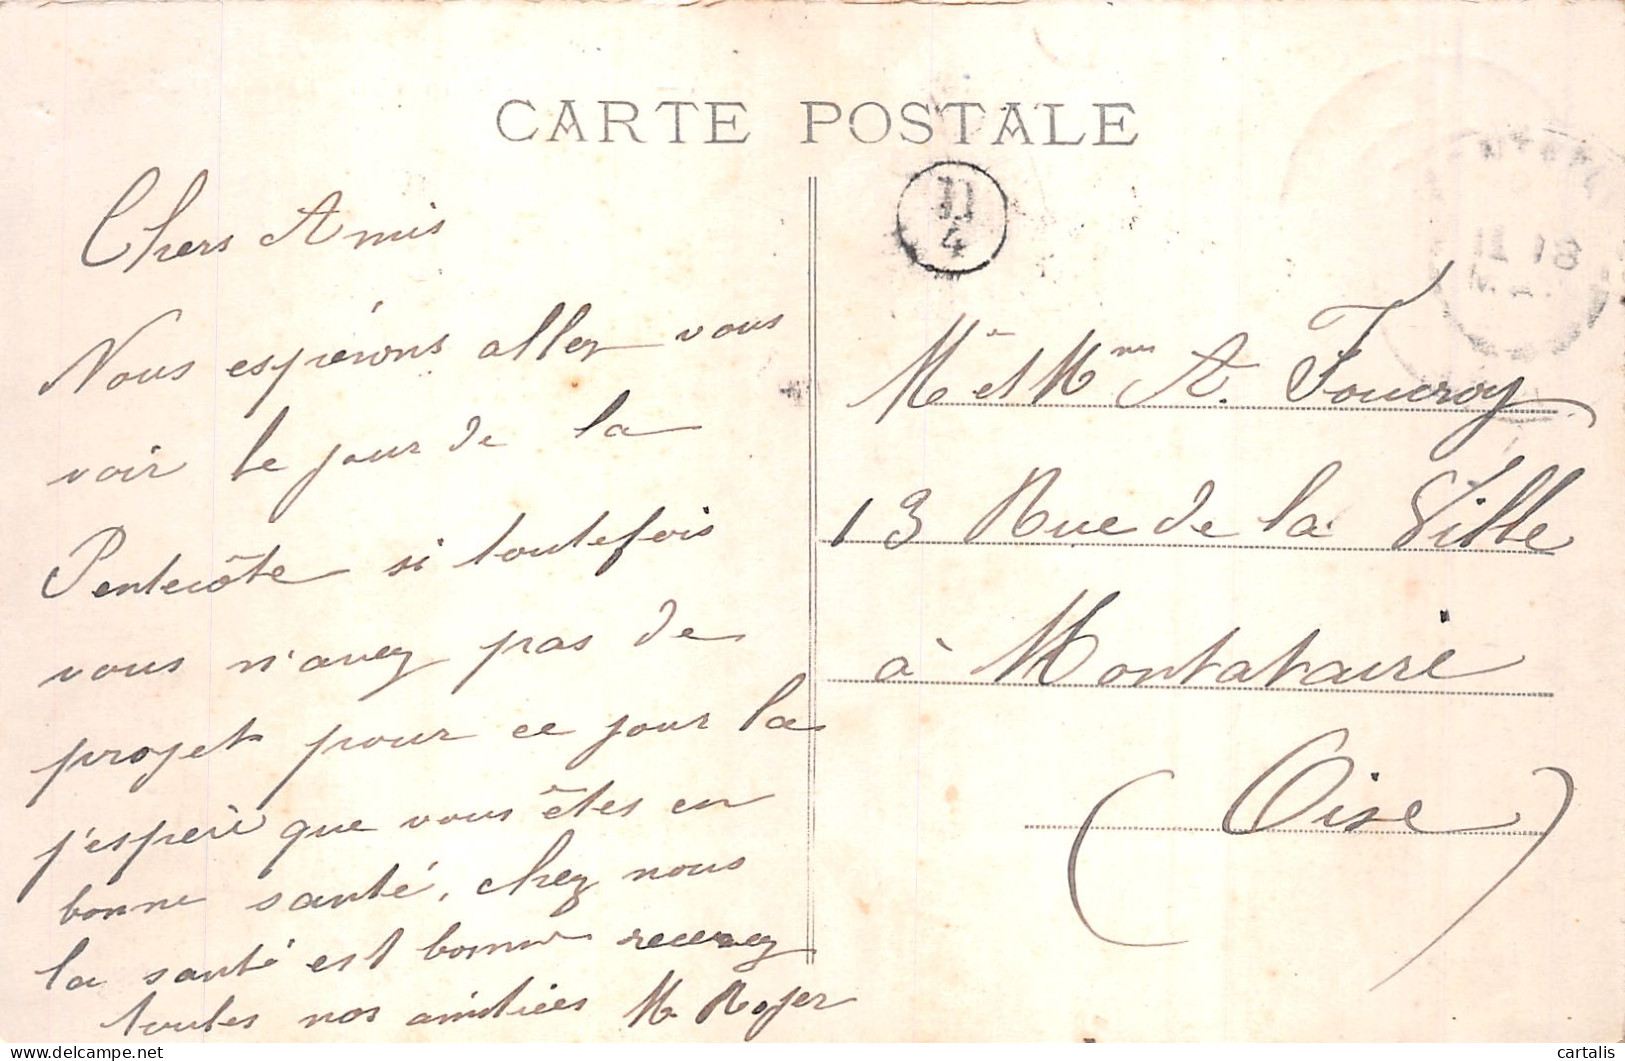 CARTE POSTALE
Chers Amis
Nous espérons aller vous
voir le jour de la
Pentecôte si toutefois
vous n'avez pas de
projet pour ce jour la
j'espère que vous êtes en
bonne santé, chez nous
la santé est bonne recevez
toutes nos amitiées M Roger
4
Mr et Mme A. Foucroy
13 Rue de la Ville
à Montataire
(Oise)
delcampe.net
cartalis